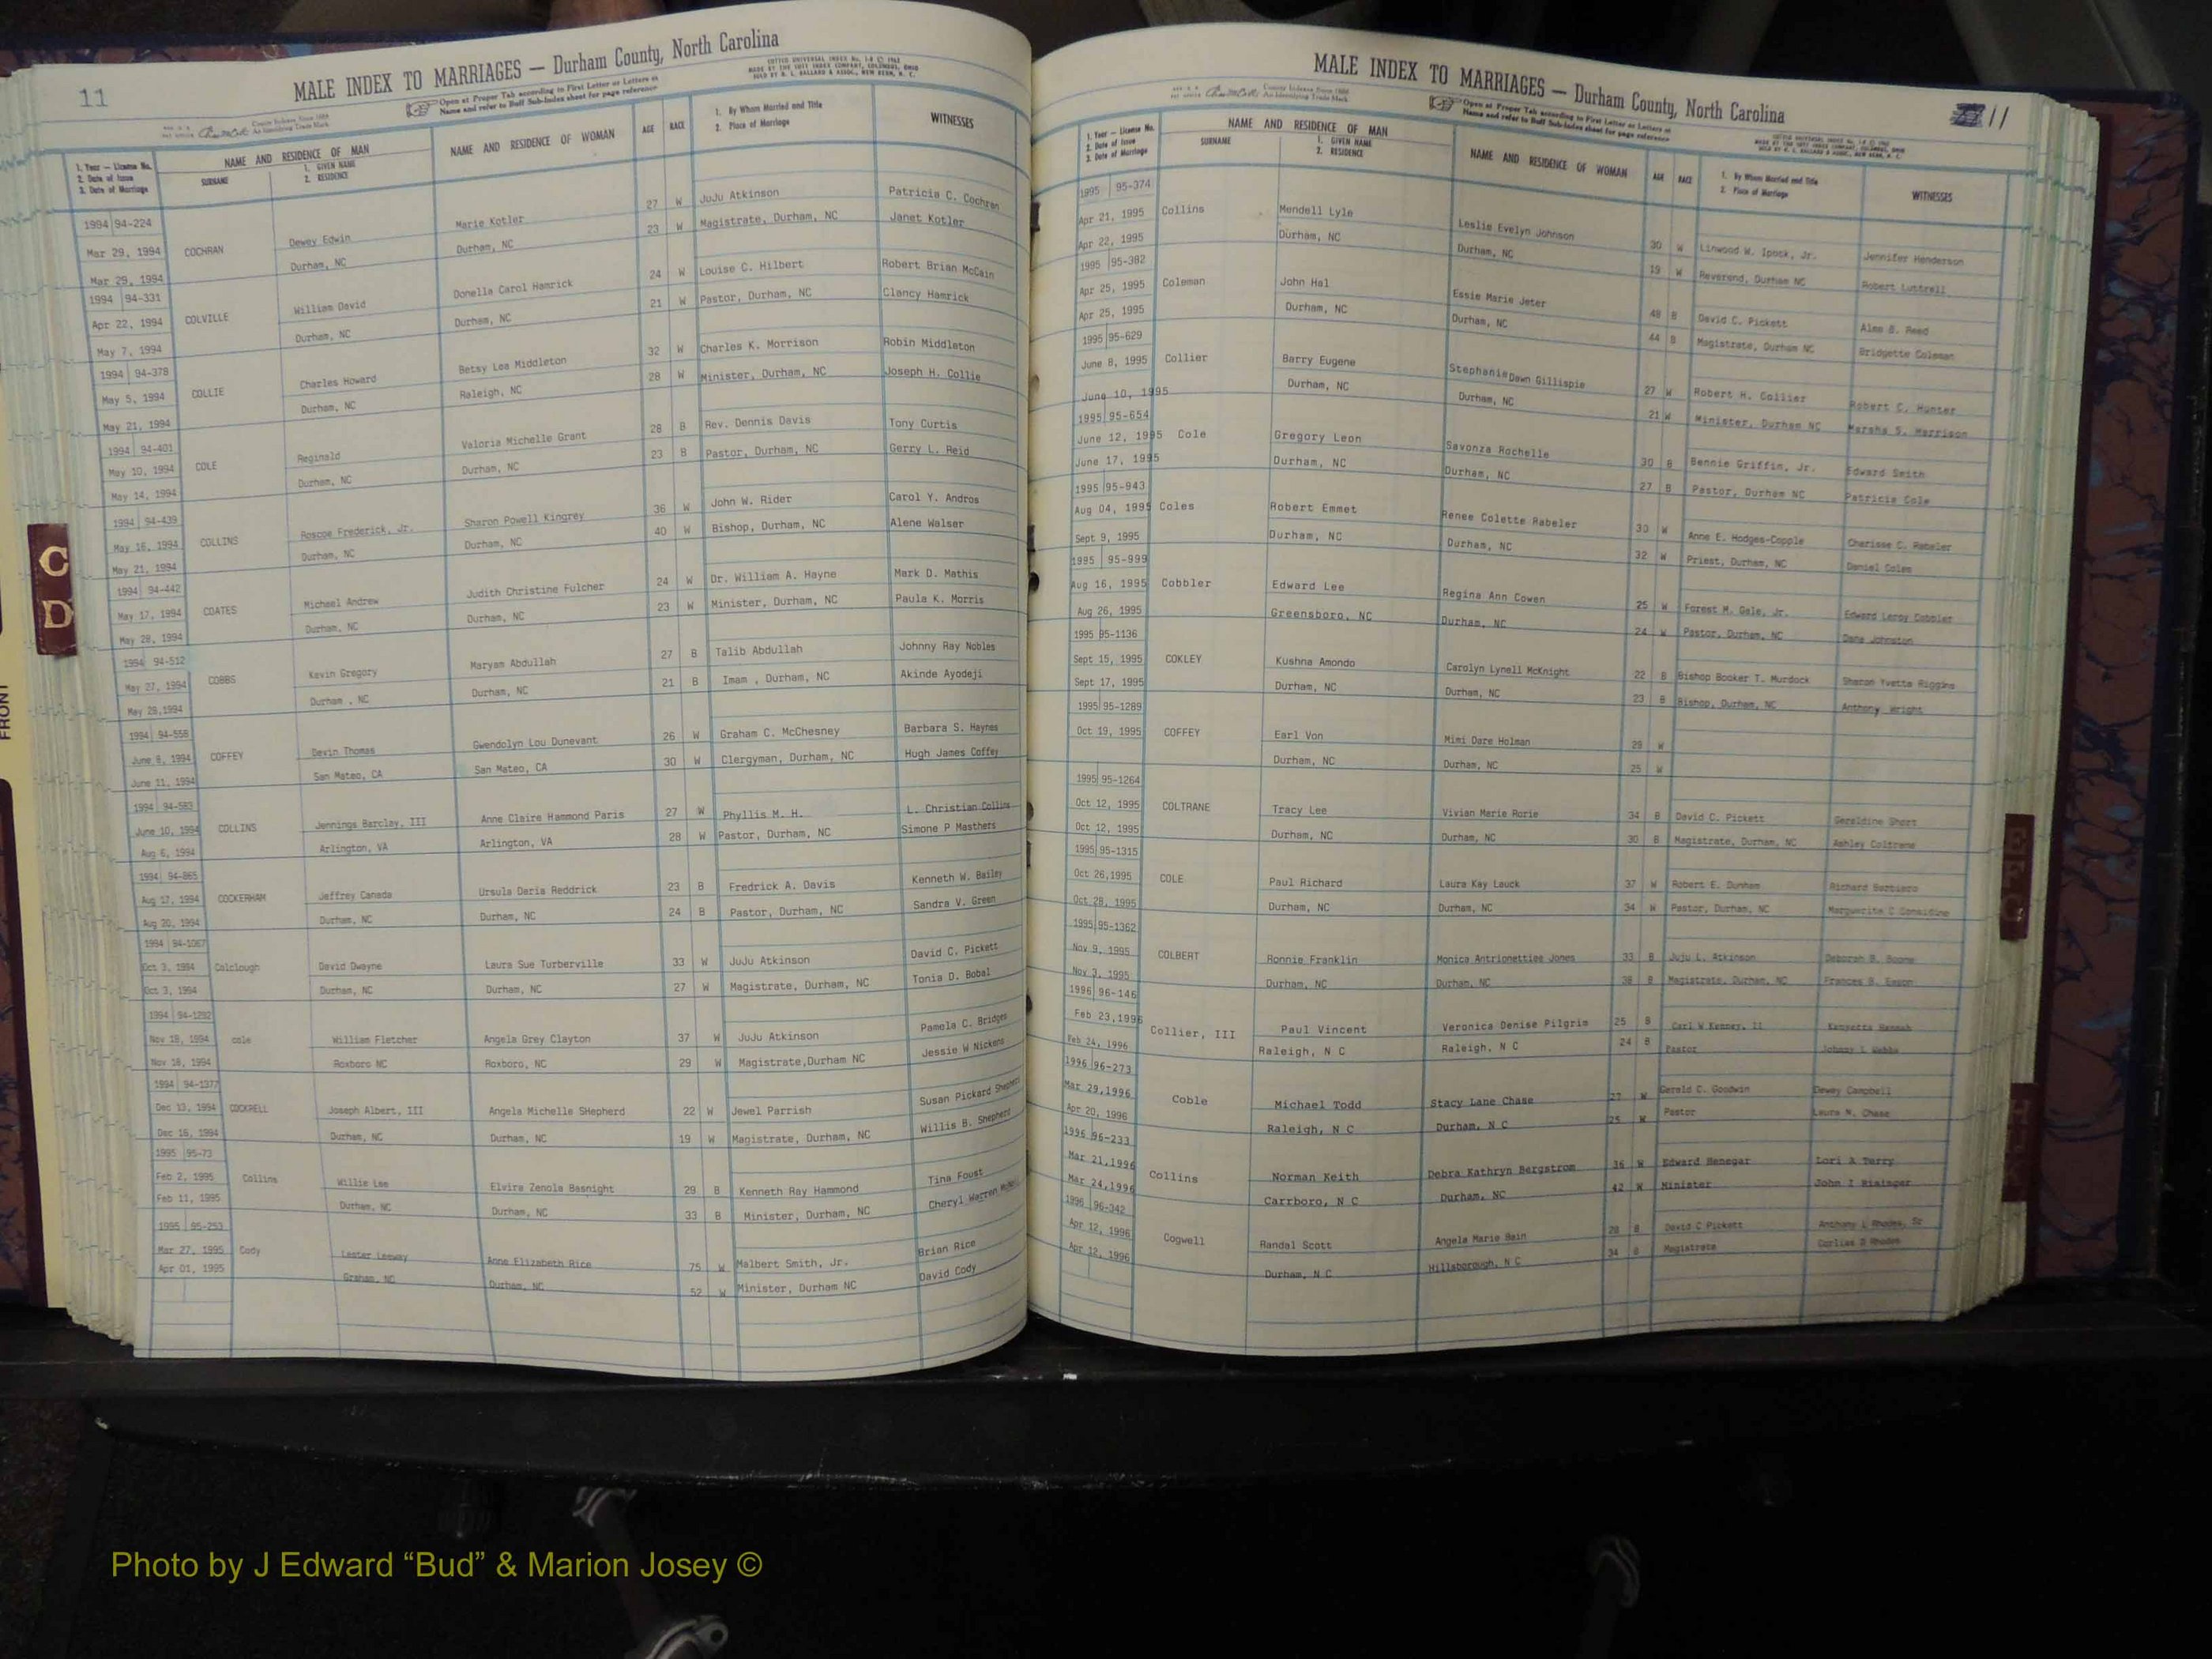 11
MALE INDEX TO MARRIAGES — Durham County, North Carolina
Open at Proper Tab according to First Letter or Letters of
Name and refer to Buff Sub-Index sheet for page reference
COTT'S UNIVERSAL INDEX
County Indexes Since 1888
An Identifying Trade Mark
1. Year — License No.
2. Date of Issue
3. Date of Marriage
NAME AND RESIDENCE OF MAN
SURNAME
1. GIVEN NAME
2. RESIDENCE
NAME AND RESIDENCE OF WOMAN
AGE
RACE
1. By Whom Married and Title
2. Place of Marriage
WITNESSES
1994 94-224 27 W JuJu Atkinson Patricia C. Cochran
Mar 29, 1994 COCHRAN Dewey Edwin Marie Kotler 23 W Magistrate, Durham, NC Janet Kotler
Mar 29, 1994 Durham, NC Durham, NC
1994 94-331 24 W Louise C. Hilbert Robert Brian McCain
Apr 22, 1994 COLVILLE William David Donella Carol Hamrick 21 W Pastor, Durham, NC Clancy Hamrick
May 7, 1994 Durham, NC Durham, NC
1994 94-378 32 W Charles K. Morrison Robin Middleton
May 5, 1994 COLLIE Charles Howard Betsy Lea Middleton 28 W Minister, Durham, NC Joseph H. Collie
May 21, 1994 Durham, NC Raleigh, NC
1994 94-401 28 B Rev. Dennis Davis Tony Curtis
May 10, 1994 COLE Reginald Valoria Michelle Grant 23 B Pastor, Durham, NC Gerry L. Reid
May 14, 1994 Durham, NC Durham, NC
1994 94-439 36 W John W. Rider Carol Y. Andros
May 16, 1994 COLLINS Roscoe Frederick, Jr. Sharon Powell Kingrey 40 W Bishop, Durham, NC Alene Walser
May 21, 1994 Durham, NC Durham, NC
1994 94-442 24 W Dr. William A. Hayne Mark D. Mathis
May 17, 1994 COATES Michael Andrew Judith Christine Fulcher 23 W Minister, Durham, NC Paula K. Morris
May 28, 1994 Durham, NC Durham, NC
1994 94-512 27 B Talib Abdullah Johnny Ray Nobles
May 27, 1994 COBBS Kevin Gregory Maryam Abdullah 21 B Imam , Durham, NC Akinde Ayodeji
May 28,1994 Durham , NC Durham, NC
1994 94-558 26 W Graham C. McChesney Barbara S. Haynes
June 8, 1994 COFFEY Devin Thomas Gwendolyn Lou Dunevant 30 W Clergyman, Durham, NC Hugh James Coffey
June 11, 1994 San Mateo, CA San Mateo, CA
1994 94-583 27 W Phyllis M. H. L. Christian Collins
June 10, 1994 COLLINS Jennings Barclay, III Anne Claire Hammond Paris 28 W Pastor, Durham, NC Simone P Masthers
Aug 6, 1994 Arlington, VA Arlington, VA
1994 94-865 23 B Fredrick A. Davis Kenneth W. Bailey
Aug 17, 1994 COCKERHAM Jeffrey Canada Ursula Daria Reddrick 24 B Pastor, Durham, NC Sandra V. Green
Aug 20, 1994 Durham, NC Durham, NC
1994 94-1067 David C. Pickett
Oct 3, 1994 Colclough David Dwayne Laura Sue Turberville 33 W JuJu Atkinson Tonia D. Bobal
Oct 3, 1994 Durham, NC Durham, NC 27 W Magistrate, Durham, NC
1994 94-1292 Pamela C. Bridges
Nov 18, 1994 cole William Fletcher Angela Grey Clayton 37 W JuJu Atkinson Jessie W Nickens
Nov 18, 1994 Roxboro NC Roxboro, NC 29 W Magistrate,Durham NC
1994 94-1377 Susan Pickard Shepherd
Dec 13, 1994 COCKRELL Joseph Albert, III Angela Michelle SHepherd 22 W Jewel Parrish Willis B. Shepherd
Dec 16, 1994 Durham, NC Durham, NC 19 W Magistrate, Durham, NC
1995 95-73
Feb 2, 1995 Collins Willie Lee Elvira Zenola Basnight 29 B Kenneth Ray Hammond Tina Foust
Feb 11, 1995 Durham, NC Durham, NC 33 B Minister, Durham, NC Cheryl Warren
1995 95-253
Mar 27, 1995 Cody Lester Leeway Anne Elizabeth Rice 75 W Malbert Smith, Jr. Brian Rice
Apr 01, 1995 Graham, NC Durham, NC 52 W Minister, Durham NC David Cody
C
D
FRONT
MALE INDEX TO MARRIAGES — Durham County, North Carolina
11
Open at Proper Tab according to First Letter or Letters of
Name and refer to Buff Sub-Index sheet for page reference
County Indexes Since 1888
An Identifying Trade Mark
1. Year — License No.
2. Date of Issue
3. Date of Marriage
NAME AND RESIDENCE OF MAN
SURNAME
1. GIVEN NAME
2. RESIDENCE
NAME AND RESIDENCE OF WOMAN
AGE
RACE
1. By Whom Married and Title
2. Place of Marriage
WITNESSES
1995 95-374
Apr 21, 1995 Collins Mendell Lyle Leslie Evelyn Johnson 30 W Linwood W. Ipock, Jr. Jennifer Henderson
Apr 22, 1995 Durham, NC Durham, NC 19 W Reverend, Durham NC Robert Luttrell
1995 95-382
Apr 25, 1995 Coleman John Hal Essie Marie Jeter 48 B David C. Pickett Alma B. Reed
Apr 25, 1995 Durham, NC Durham, NC 44 B Magistrate, Durham NC Bridgette Coleman
1995 95-629
June 8, 1995 Collier Barry Eugene Stephanie Dawn Gillispie 27 W Robert H. Collier Robert C. Hunter
June 10, 1995 Durham, NC Durham, NC 21 W Minister, Durham NC Marsha S. Harrison
1995 95-654
June 12, 1995 Cole Gregory Leon Savonza Rochelle 30 B Bennie Griffin, Jr. Edward Smith
June 17, 1995 Durham, NC Durham, NC 27 B Pastor, Durham NC Patricia Cole
1995 95-943
Aug 04, 1995 Coles Robert Emmet Renee Colette Rabeler 30 W Anne E. Hodges-Copple Charisse C. Rabeler
Sept 9, 1995 Durham, NC Durham, NC 32 W Priest, Durham, NC Daniel Coles
1995 95-999
Aug 16, 1995 Cobbler Edward Lee Regina Ann Cowen 25 W Forest M. Gale, Jr. Edward Leroy Cobbler
Aug 26, 1995 Greensboro, NC Durham, NC 24 W Pastor, Durham, NC Dane Johnston
1995 95-1136
Sept 15, 1995 COKLEY Kushna Amondo Carolyn Lynell McKnight 22 B Bishop Booker T. Murdock Sharon Yvette Riggins
Sept 17, 1995 Durham, NC Durham, NC 23 B Bishop, Durham, NC Anthony Wright
1995 95-1289
Oct 19, 1995 COFFEY Earl Von Mimi Dare Holman 29 W
Durham, NC Durham, NC 25 W
1995 95-1264
Oct 12, 1995 COLTRANE Tracy Lee Vivian Marie Rorie 34 B David C. Pickett Geraldine Short
Oct 12, 1995 Durham, NC Durham, NC 30 B Magistrate, Durham, NC Ashley Coltrane
1995 95-1315
Oct 26,1995 COLE Paul Richard Laura Kay Lauck 37 W Robert E. Dunham Richard
Oct 28, 1995 Durham, NC Durham, NC 34 W Pastor, Durham, NC Marguerite C
1995 95-1362
Nov 9, 1995 COLBERT Ronnie Franklin Monica Antrionettiee Jones 33 B Juju L. Atkinson Deborah B. Boone
Nov 3, 1995 Durham, NC Durham, NC 38 B Magistrate, Durham, NC Frances B. Eason
1996 96-146
Feb 23,1996 Collier, III Paul Vincent Veronica Denise Pilgrim 25 B Carl W Kenney, II
Feb 24, 1996 Raleigh, N C Raleigh, N C 24 B Pastor Johnny L Webbs
1996 96-273
Mar 29,1996 Coble Michael Todd Stacy Lane Chase 27 W Gerald C. Goodwin Dewey Campbell
Apr 20, 1996 Raleigh, N C Durham, N C 25 W Pastor Laura N. Chase
1996 96-233
Mar 21,1996 Collins Norman Keith Debra Kathryn Bergstrom 36 W Edward Henegar Lori A Terry
Mar 24,1996 Carrboro, N C Durham, NC 42 W Minister John I Risinger
1996 96-342
Apr 12, 1996 Cogwell Randal Scott Angela Marie Bain 28 B David C Pickett Anthony L Rhodes, Sr
Apr 12, 1996 Durham, N C Hillsborough, N C 34 B Magistrate Carlise D Rhodes
Photo by J Edward “Bud” & Marion Josey ©